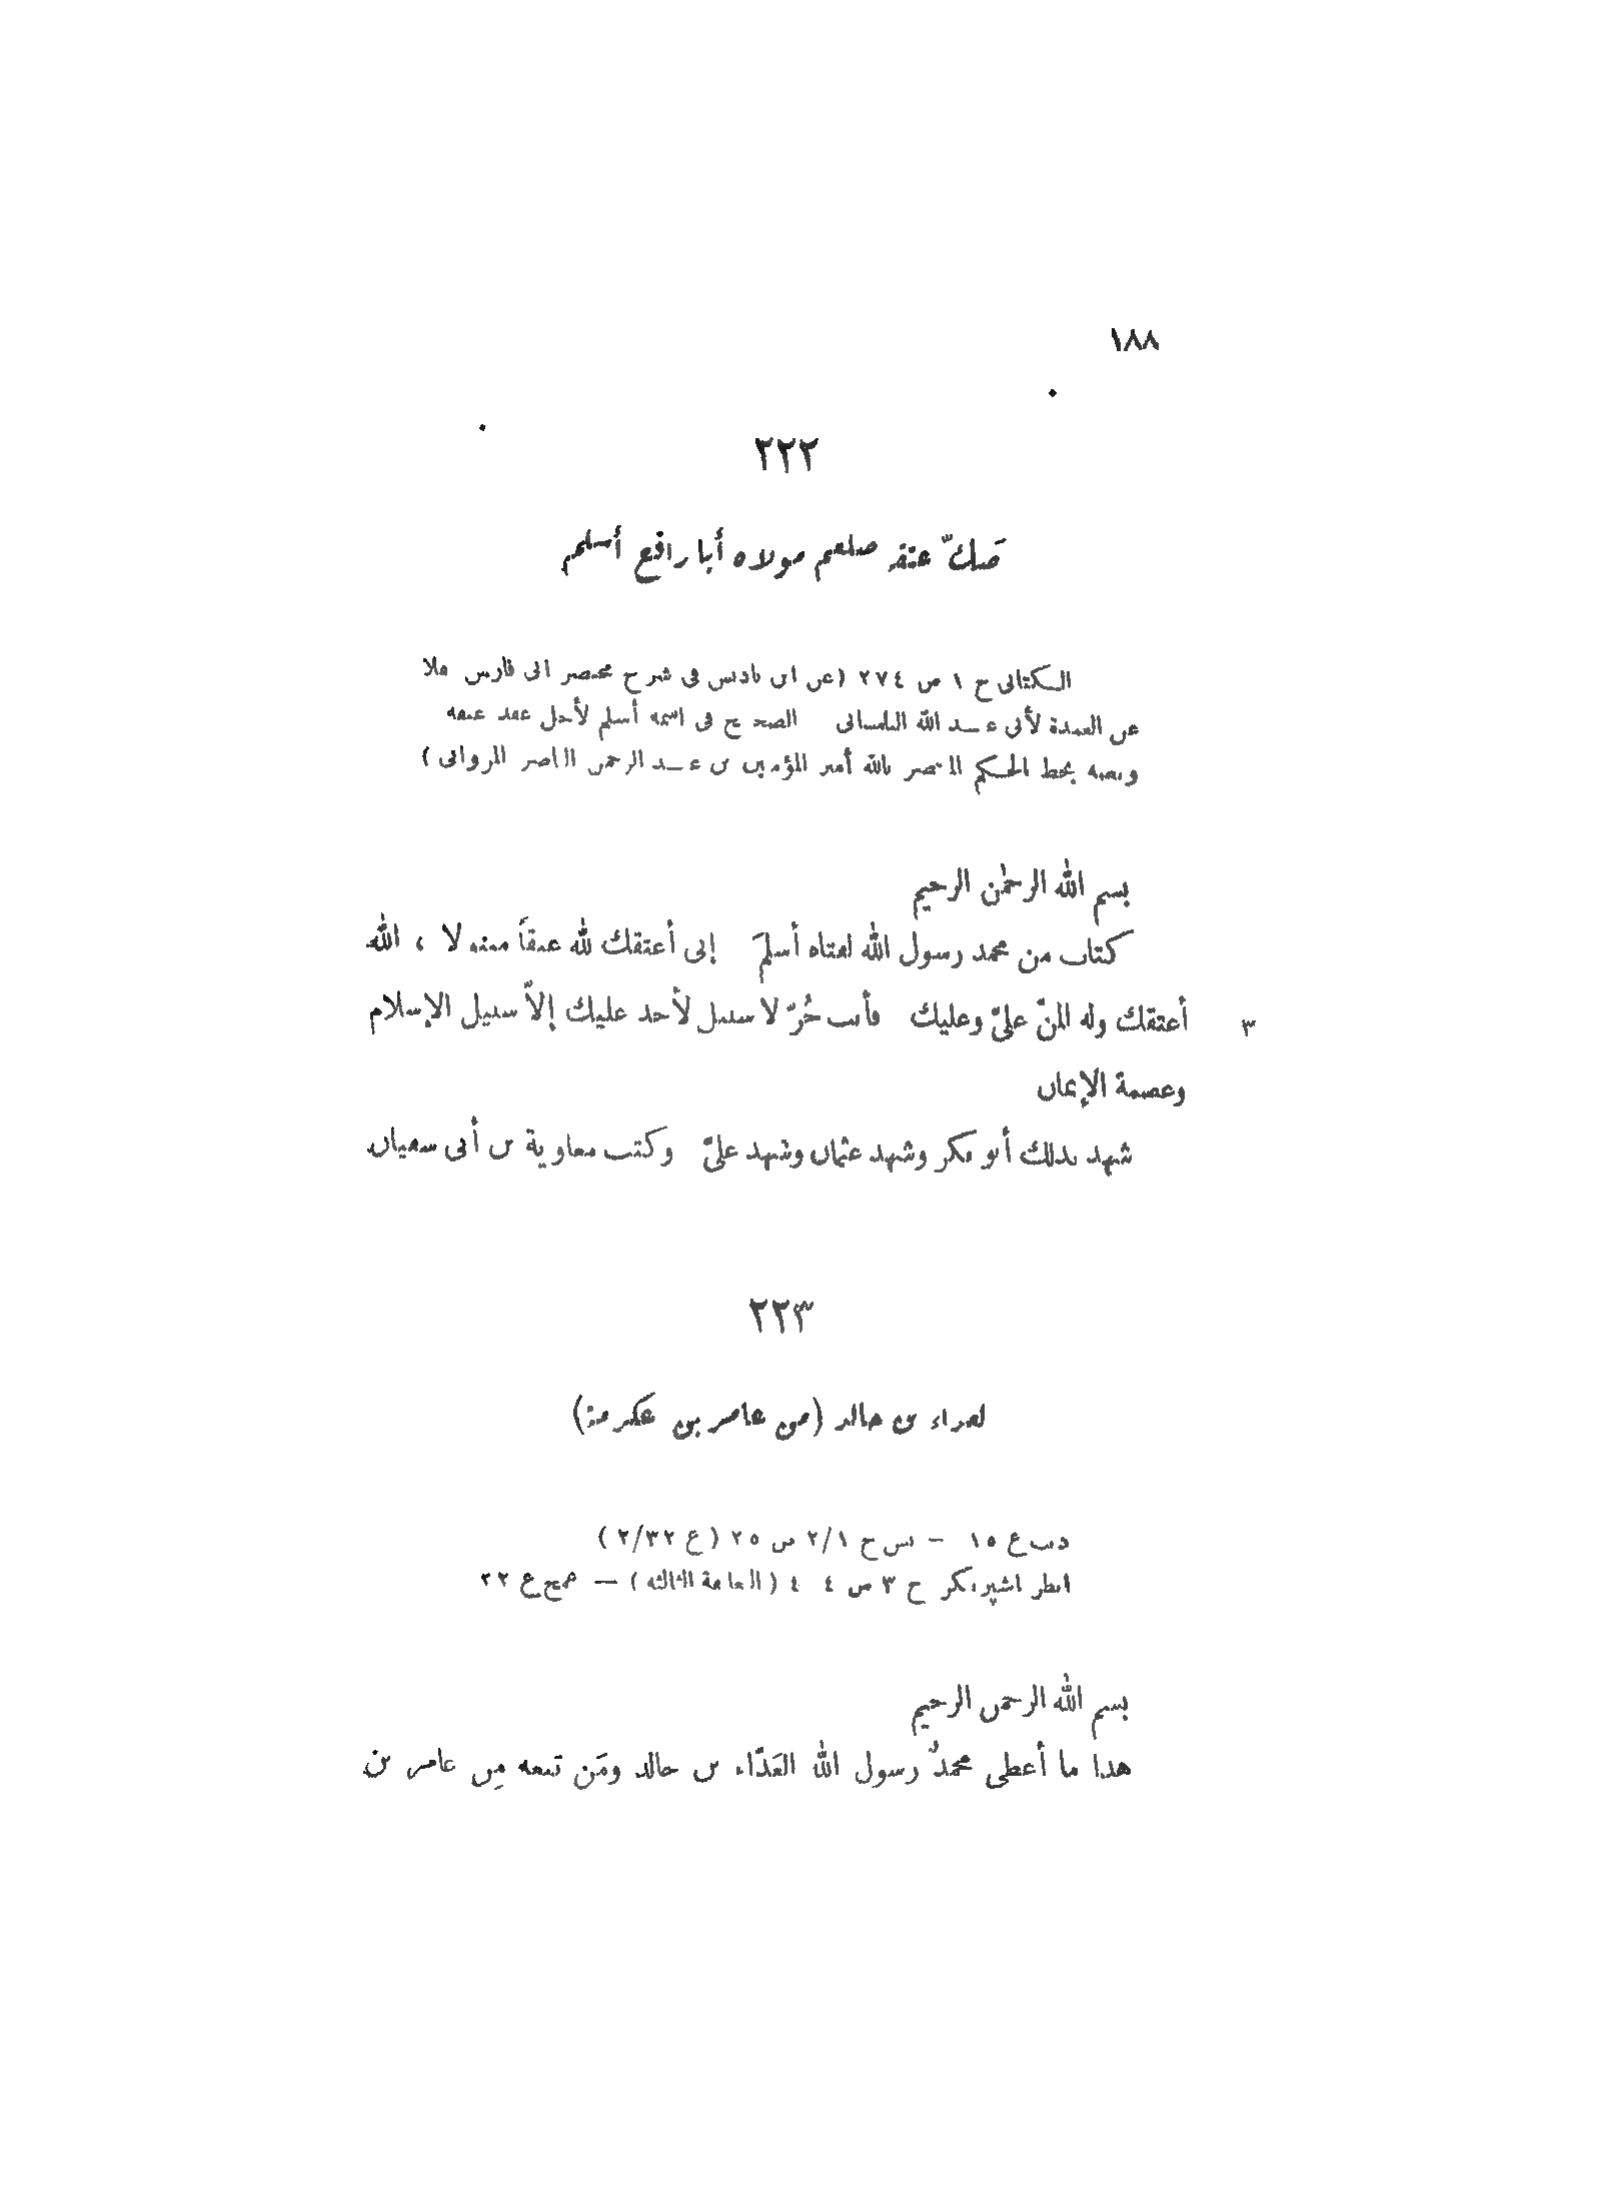 ١٨٨
٢٢٢
صَكّ عتقه صلعم مولاه أبا رافع أسلم
الكتانى ج ١ ص ٢٧٤ (عن ابن باديس فى شرح مختصر ابى فارس نقلا
عن العمدة لأبى عبد الله التلمسانى الصحيح فى اسمه أسلم لأجل عقد عتقه
ونصه بخط الحكم المنتصر بالله أمير المؤمنين بن عبد الرحمن الناصر المروانى)
بسم الله الرحمٰن الرحيم
كتاب من محمد رسول الله لفتاه أسلمَ إنى أعتقك لله عتقاً مبتولا ، الله
أعتقك وله المنّ علىّ وعليك فأنت حُرّ لا سبيل لأحد عليك إلاّ سبيل الإسلام
٣
وعصمة الإيمان
شهد بذلك أبو بكر وشهد عثمان وشهد علىّ وكتب معاوية بن أبى سفيان
٢٢٣
لعداء بن خالد (من عامر بن عكرمة)
دبب ع ١٥ - بس ج ٢/١ ص ٢٥ (ع ٢/٣٢)
انظر اشپرنكر ج ٣ ص ٤ ٤ (التعليقة الثالثة) —  ع ٢٢
بسم الله الرحمن الرحيم
هذا ما أعطى محمدٌ رسول الله العَدّاء بن خالد ومَن تبعه مِن عامر بن